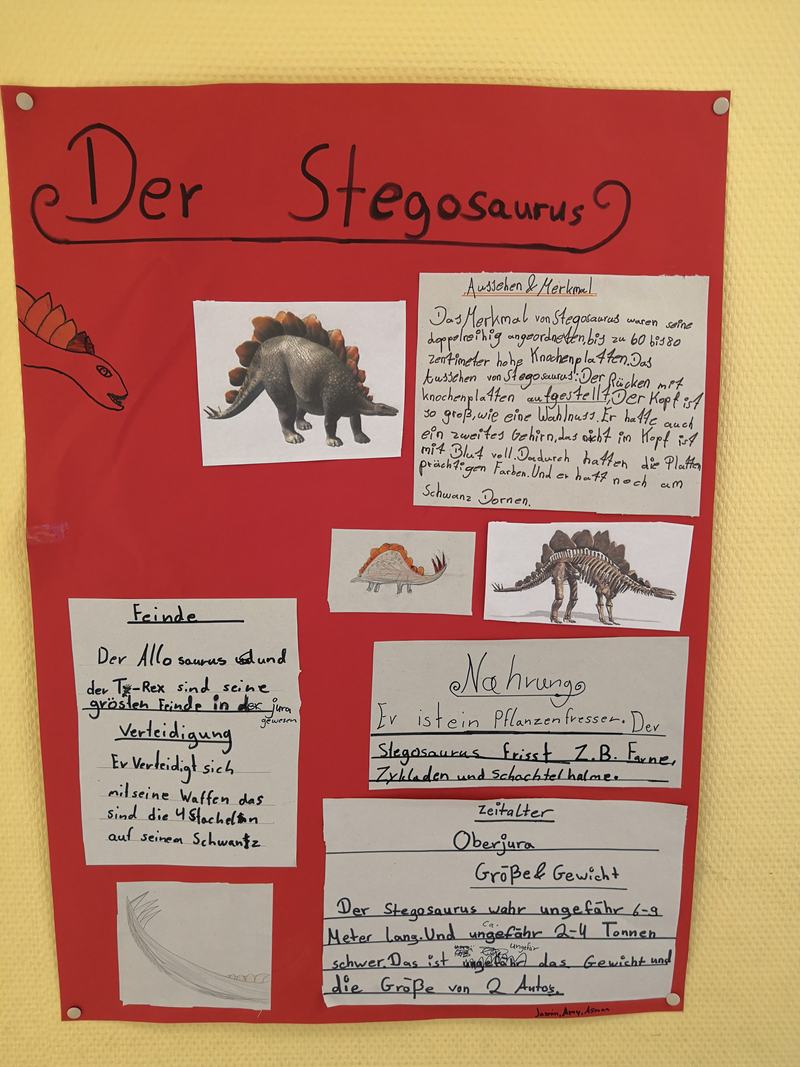 Der Stegosaurus
Aussehen & Merkmal
Das Merkmal von Stegosaurus waren seine
doppelreihig angeordnetten, bis zu 60 bis 80
zentimeter hohe Knochenplatten. Das
Aussehen von Stegosaurus: Der Rücken mit
knochenplatten aufgestellt. Der Kopf ist
so groß, wie eine Wahlnuss. Er hatte auch
ein zweites Gehirn, das nicht im Kopf ist
mit Blut voll. Dadurch hatten die Platten
prächtigen Farben. Und er hatt noch am
Schwanz Dornen.
Feinde
Der Allosaurus und
der T-Rex sind seine
grösten Feinde in der jura
gewesen
Verteidigung
Er Verteidigt sich
mit seine Waffen das
sind die 4 Stacheln
auf seinem Schwantz
Nahrung
Er ist ein Pflanzenfresser. Der
Stegosaurus frisst Z.B. Farne,
Zykladen und Schachtelhalme.
Zeitalter
Oberjura
Größe & Gewicht
Der Stegosaurus wahr ungefähr 6-9
Meter Lang. Und ungefähr 2-4 Tonnen
ca.
schwer. Das ist ungefär das Gewicht und
die Größe von 2 Autos.
Jasmin, Amy, Asman